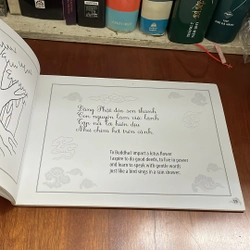 Dâng Phật đóa sen thanh
Con nguyện làm việc lành
Tập nói lời hiền dịu
Như chim hót trên cành.
To Buddha I impart a lotus flower
I aspire to do good deeds, to live in power
and learn to speak with gentle words
just like a bird sings in a rain shower.